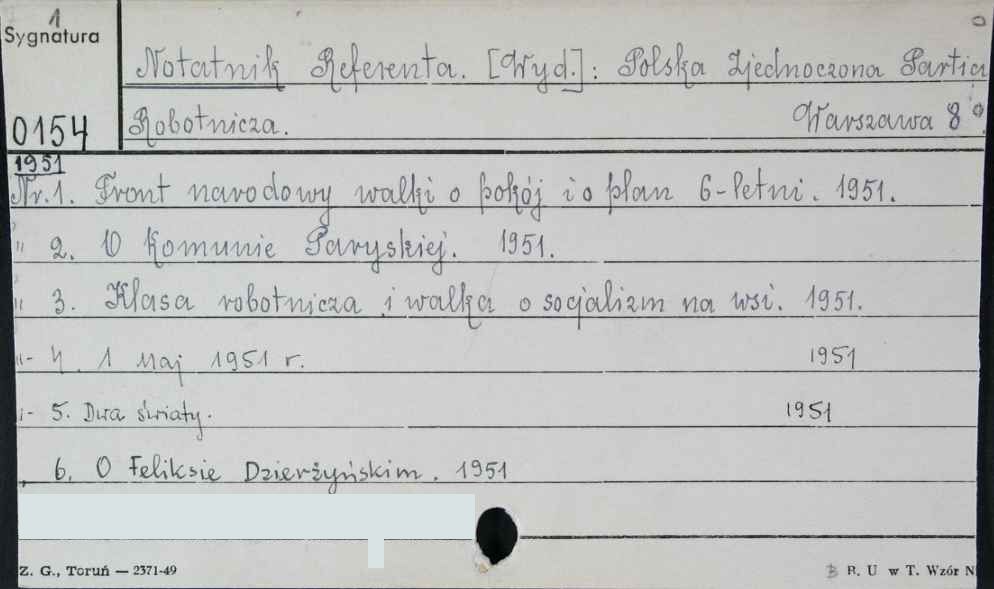 1
Sygnatura
Notatnik Referenta. [Wyd.]: Polska Zjednoczona Partia
0154 Robotnicza. Warszawa 8°.
1951
Nr. 1. Front narodowy walki o pokój i o plan 6-letni. 1951.
" 2. O Komunie Paryskiej. 1951.
" 3. Klasa robotnicza i walka o socjalizm na wsi. 1951.
"- 4. 1 Maj 1951 r. 1951
"- 5. Dwa światy. 1951
6. O Feliksie Dzierżyńskim. 1951
Z. G., Toruń — 2371-49 B R. U w T. Wzór N